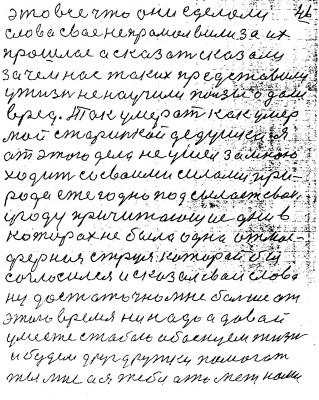 это все что они сделали 46
слова свое не промолвили за их
прошлое а сказат сказали
зачем нас таких представили
у жизни не научили
вред. Так умерат как умер
мой старикой дедушка я
от этого дела не ушел за мною
ходит со своими силами при-
рода ежегодно подсылает свою
уроду причитающие дни в
которах не была одна отмос-
ферная струя которой бы
согласился и сказал свай слова
ни достаточно мне больше от
этого время ни надо а давай
умеете с табою
и будем друг дружки помогат
ты мне а я тебе а то между нами